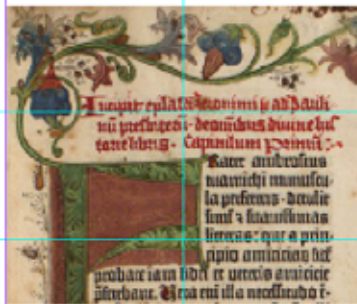 Incipit ep̄la Jeronimi ad Pauli
nū presbiterū: de omībus diuine his
torie libris. Capitulum Primū:
Frater ambrosius
tua michi munuscu-
la perferens. detulit
simul ⁊ suauissimas
litteras: que a prin-
cipio amiciciaꝝ fidē
probate iam fidei et veteris amicicie
preferebant. Vera eni illa necessitudo ē-